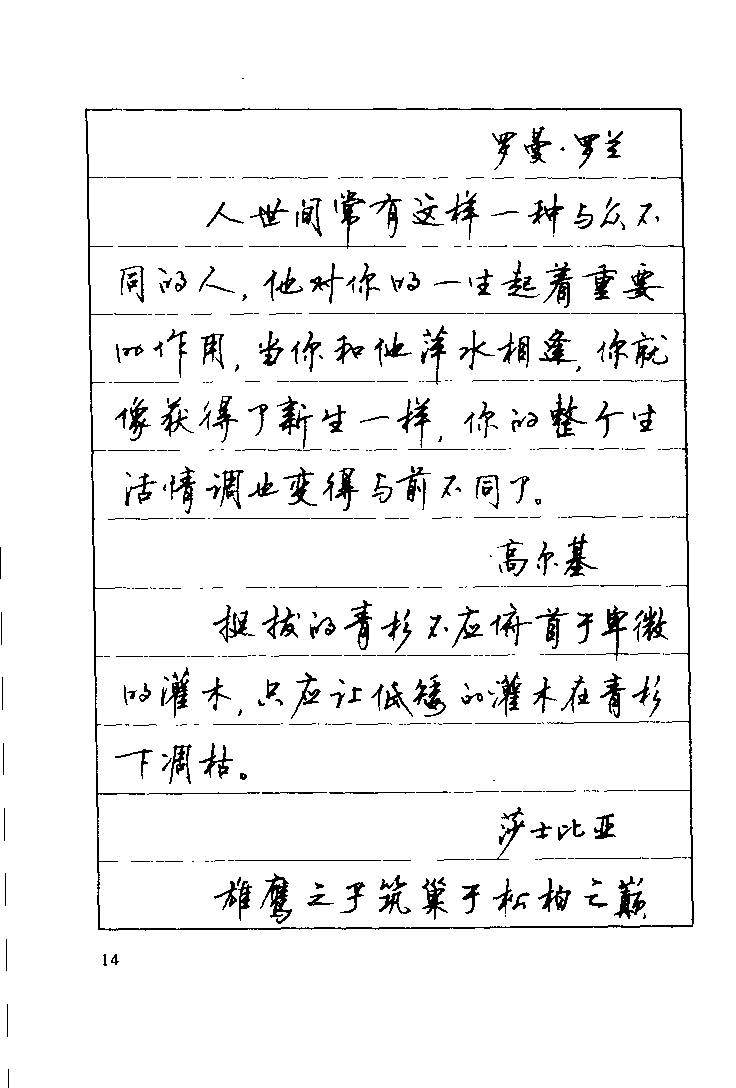 罗曼·罗兰
人世间常有这样一种与众不
同的人,他对你的一生起着重要
的作用,当你和他萍水相逢,你就
像获得了新生一样,你的整个生
活情调也变得与前不同了。
高尔基
挺拔的青杉不应俯首于卑微
的灌木,只应让低矮的灌木在青杉
下凋枯。
莎士比亚
雄鹰之子筑巢于松柏之巅
14